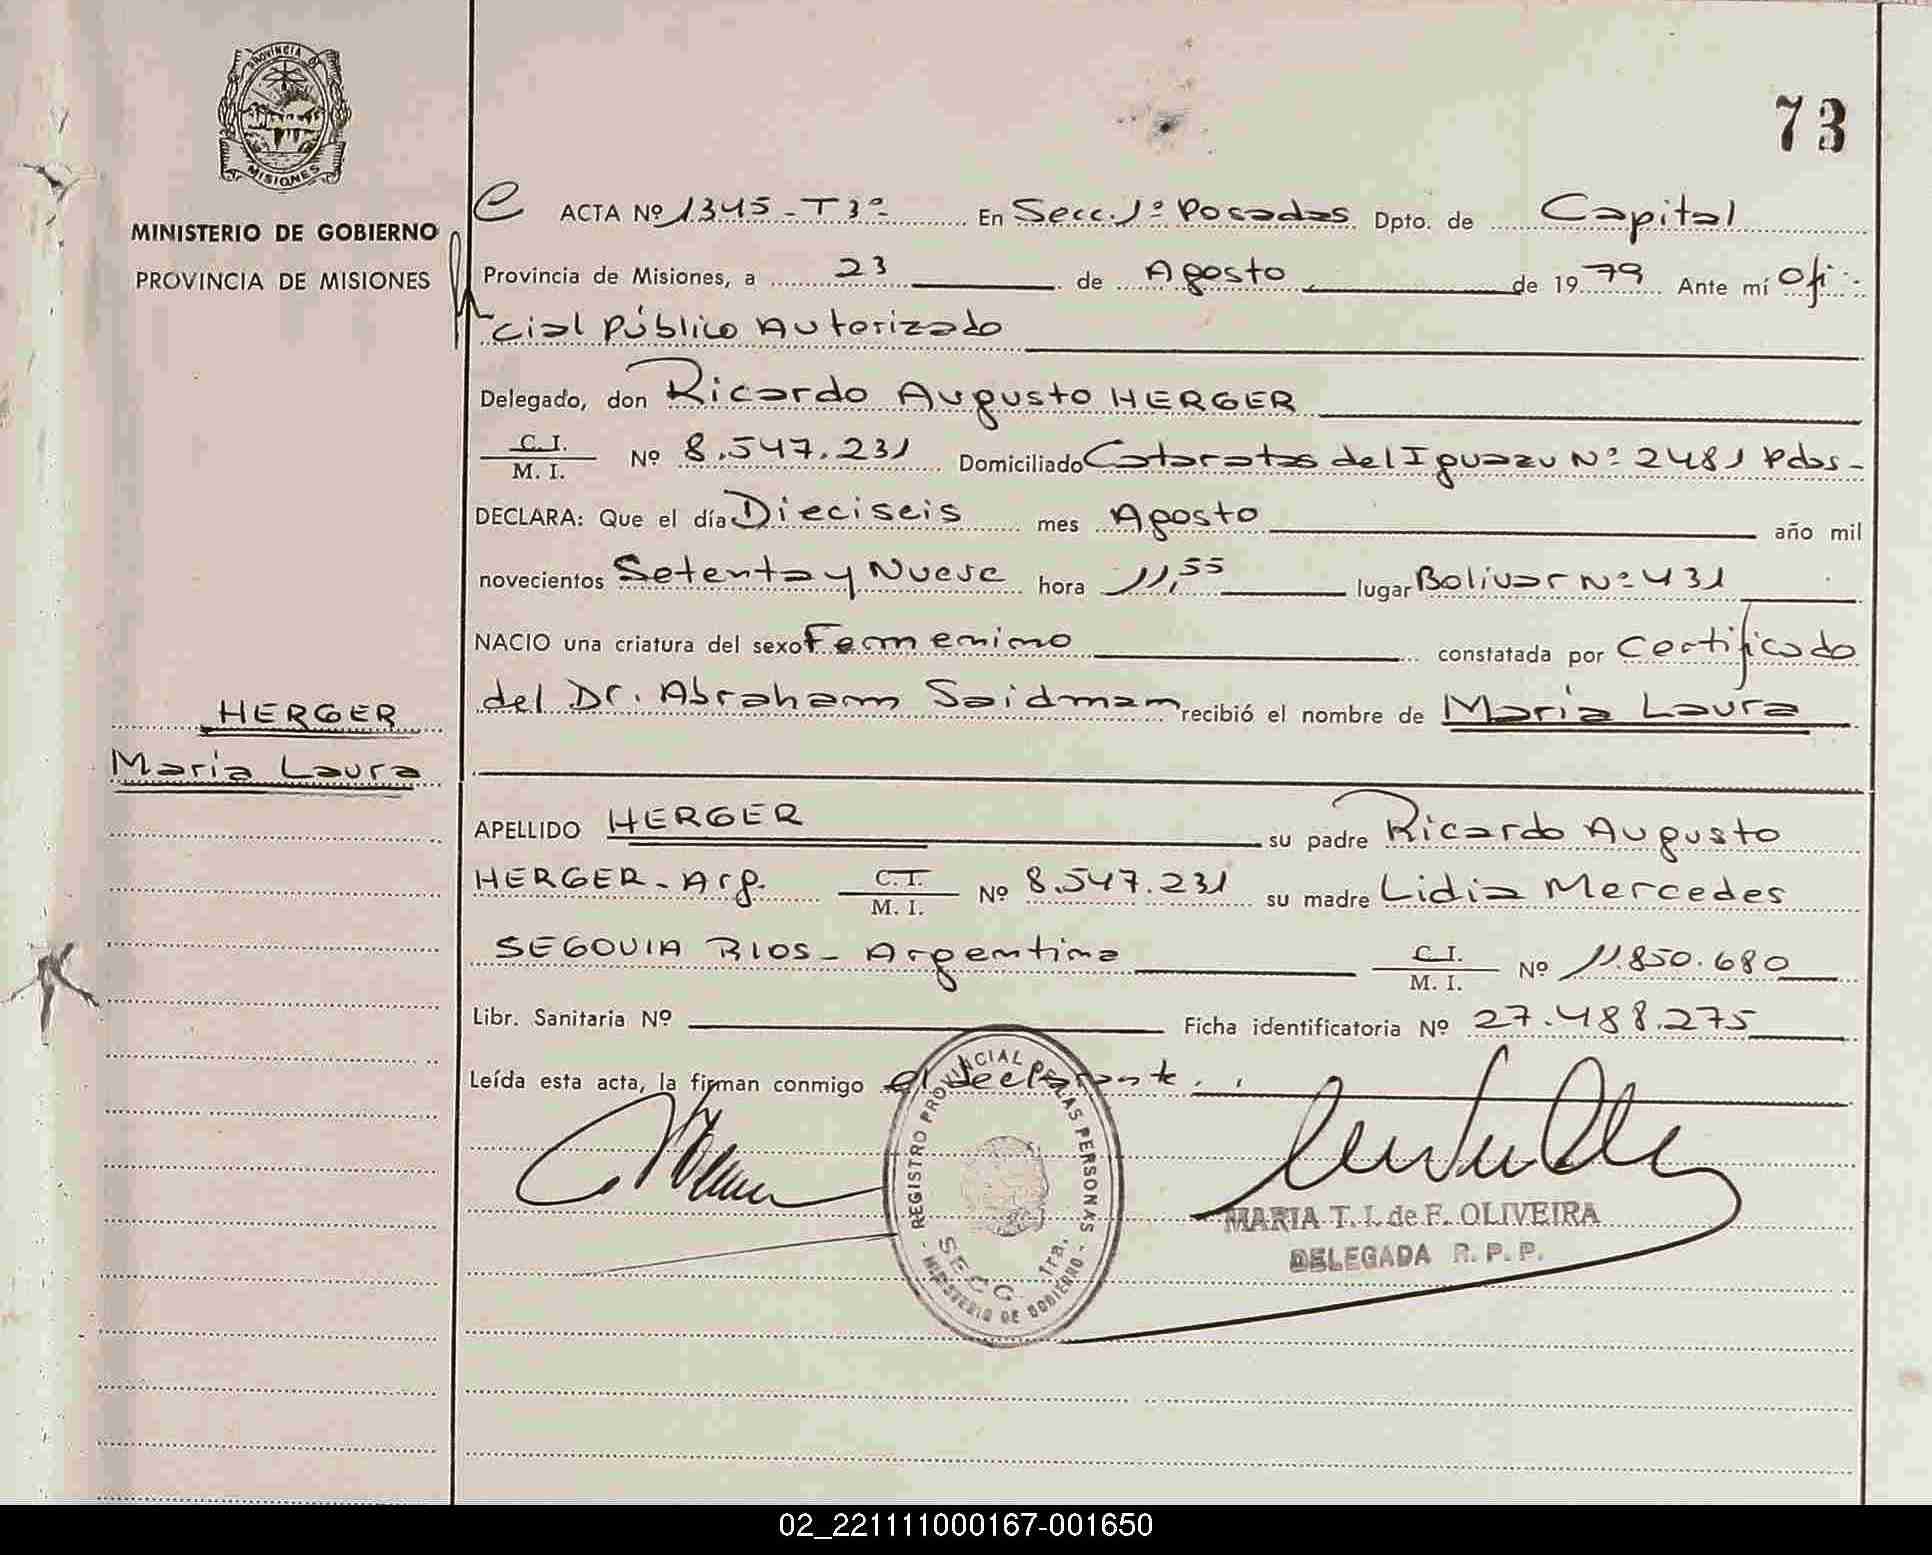 73
PROVINCIA D
MISIONES
MINISTERIO DE GOBIERNO
PROVINCIA DE MISIONES
HERGER
Maria Laura
ACTA Nº 1345-T3º En Secc. 1º Posadas Dpto. de Capital
Provincia de Misiones, a 23 de Agosto de 1979 Ante mí Ofi-
cial Público Autorizado
Delegado, don Ricardo Augusto HERGER
C.I. / M. I. Nº 8.547.231 Domiciliado Cataratas del Iguazu Nº 2481 Pdas-
DECLARA: Que el día Dieciseis mes Agosto año mil
novecientos Setenta y Nueve hora 11,55 lugar Bolivar Nº 431
NACIO una criatura del sexo Femenino constatada por Certificado
del Dr. Abraham Saidman recibió el nombre de Maria Laura
APELLIDO HERGER su padre Ricardo Augusto
HERGER-Arg. C.I. / M. I. Nº 8.547.231 su madre Lidia Mercedes
SEGOVIA RIOS- Argentina C.I. / M. I. Nº 11.850.680
Libr. Sanitaria Nº Ficha identificatoria Nº 27.488.275
Leída esta acta, la firman conmigo el declarante.
REGISTRO PROVINCIAL DE LAS PERSONAS
SECC. 1ra.
MINISTERIO DE GOBIERNO
MARIA T. I. de F. OLIVEIRA
DELEGADA R. P. P.
02_221111000167-001650